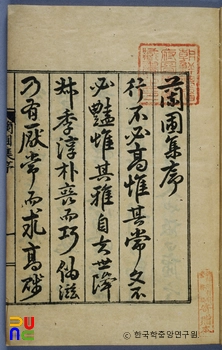 蘭圃集序
行不必高惟其常文不
必豔惟其雅自夫世降
材季淳朴喪而巧偽滋
乃有厭常而求高
蘭圃集序
© 한국학중앙연구원